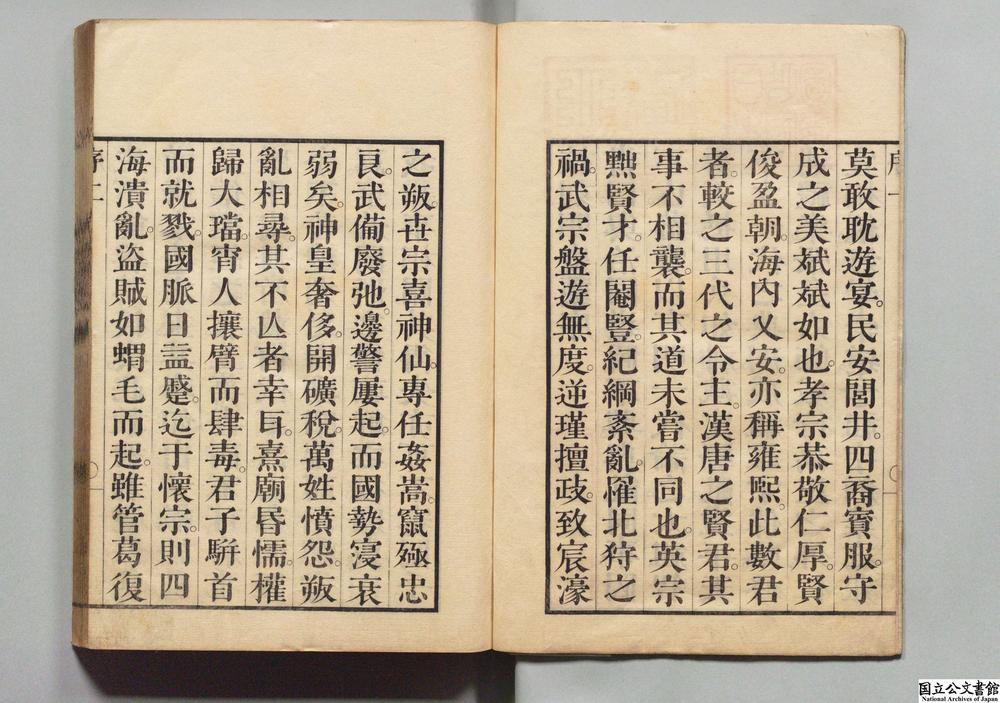 莫敢耽遊宴。民安閭井。四裔賓服。守
成之美斌斌如也。孝宗恭敬仁厚。賢
俊盈朝。海內乂安。亦稱雍熙。此數君
者。較之三代之令主。漢唐之賢君。其
事不相襲。而其道未嘗不同也。英宗
㷩賢才。任閹豎。紀綱紊亂。罹北狩之
禍。武宗盤遊無度。逆瑾擅政。致宸濠
之叛。世宗喜神仙。專任姦嵩。竄殛忠
良。武備廢弛。邊警屢起。而國勢寖衰
弱矣。神皇奢侈。開礦稅。萬姓憤怨。叛
亂相尋。其不亾者幸耳。熹廟昏懦。權
歸大璫。宵人攘臂而肆毒。君子駢首
而就戮。國脈日盬蹙。迄于懷宗。則四
海潰亂。盜賊如蝟毛而起。雖管葛復
序一
序二
国立公文書館
National Archives of Japan